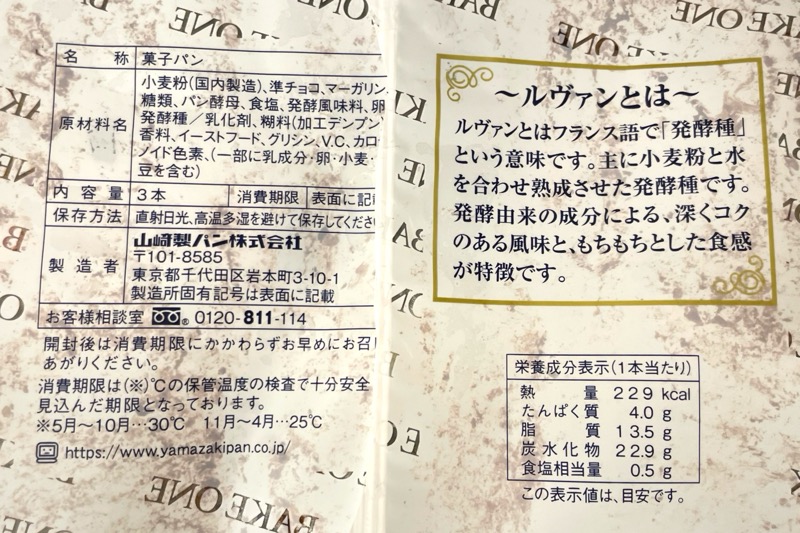 名称 菓子パン
原材料名 小麦粉(国内製造)、準チョコ、マーガリン
糖類、パン酵母、食塩、発酵風味料、卵
発酵種/乳化剤、糊料(加工デンプン
香料、イーストフード、グリシン、V.C、カロ
ノイド色素、(一部に乳成分・卵・小麦
豆を含む)
内容量 3本 消費期限 表面に記
保存方法 直射日光、高温多湿を避けて保存してくださ
製造者 山崎製パン株式会社
〒101-8585
東京都千代田区岩本町3-10-1
製造所固有記号は表面に記載
お客様相談室 0120-811-114
開封後は消費期限にかかわらずお早めにお召
あがりください。
消費期限は(※)℃の保管温度の検査で十分安全
見込んだ期限となっております。
※5月~10月…30℃ 11月~4月…25℃
https://www.yamazakipan.co.jp/
~ルヴァンとは~
ルヴァンとはフランス語で「発酵種」
という意味です。主に小麦粉と水
を合わせ熟成させた発酵種です。
発酵由来の成分による、深くコク
のある風味と、もちもちとした食感
が特徴です。
栄養成分表示(1本当たり)
熱量 229 kcal
たんぱく質 4.0 g
脂質 13.5 g
炭水化物 22.9 g
食塩相当量 0.5 g
この表示値は、目安です。
BAKE ONE
BAKE ONE
BAKE ONE